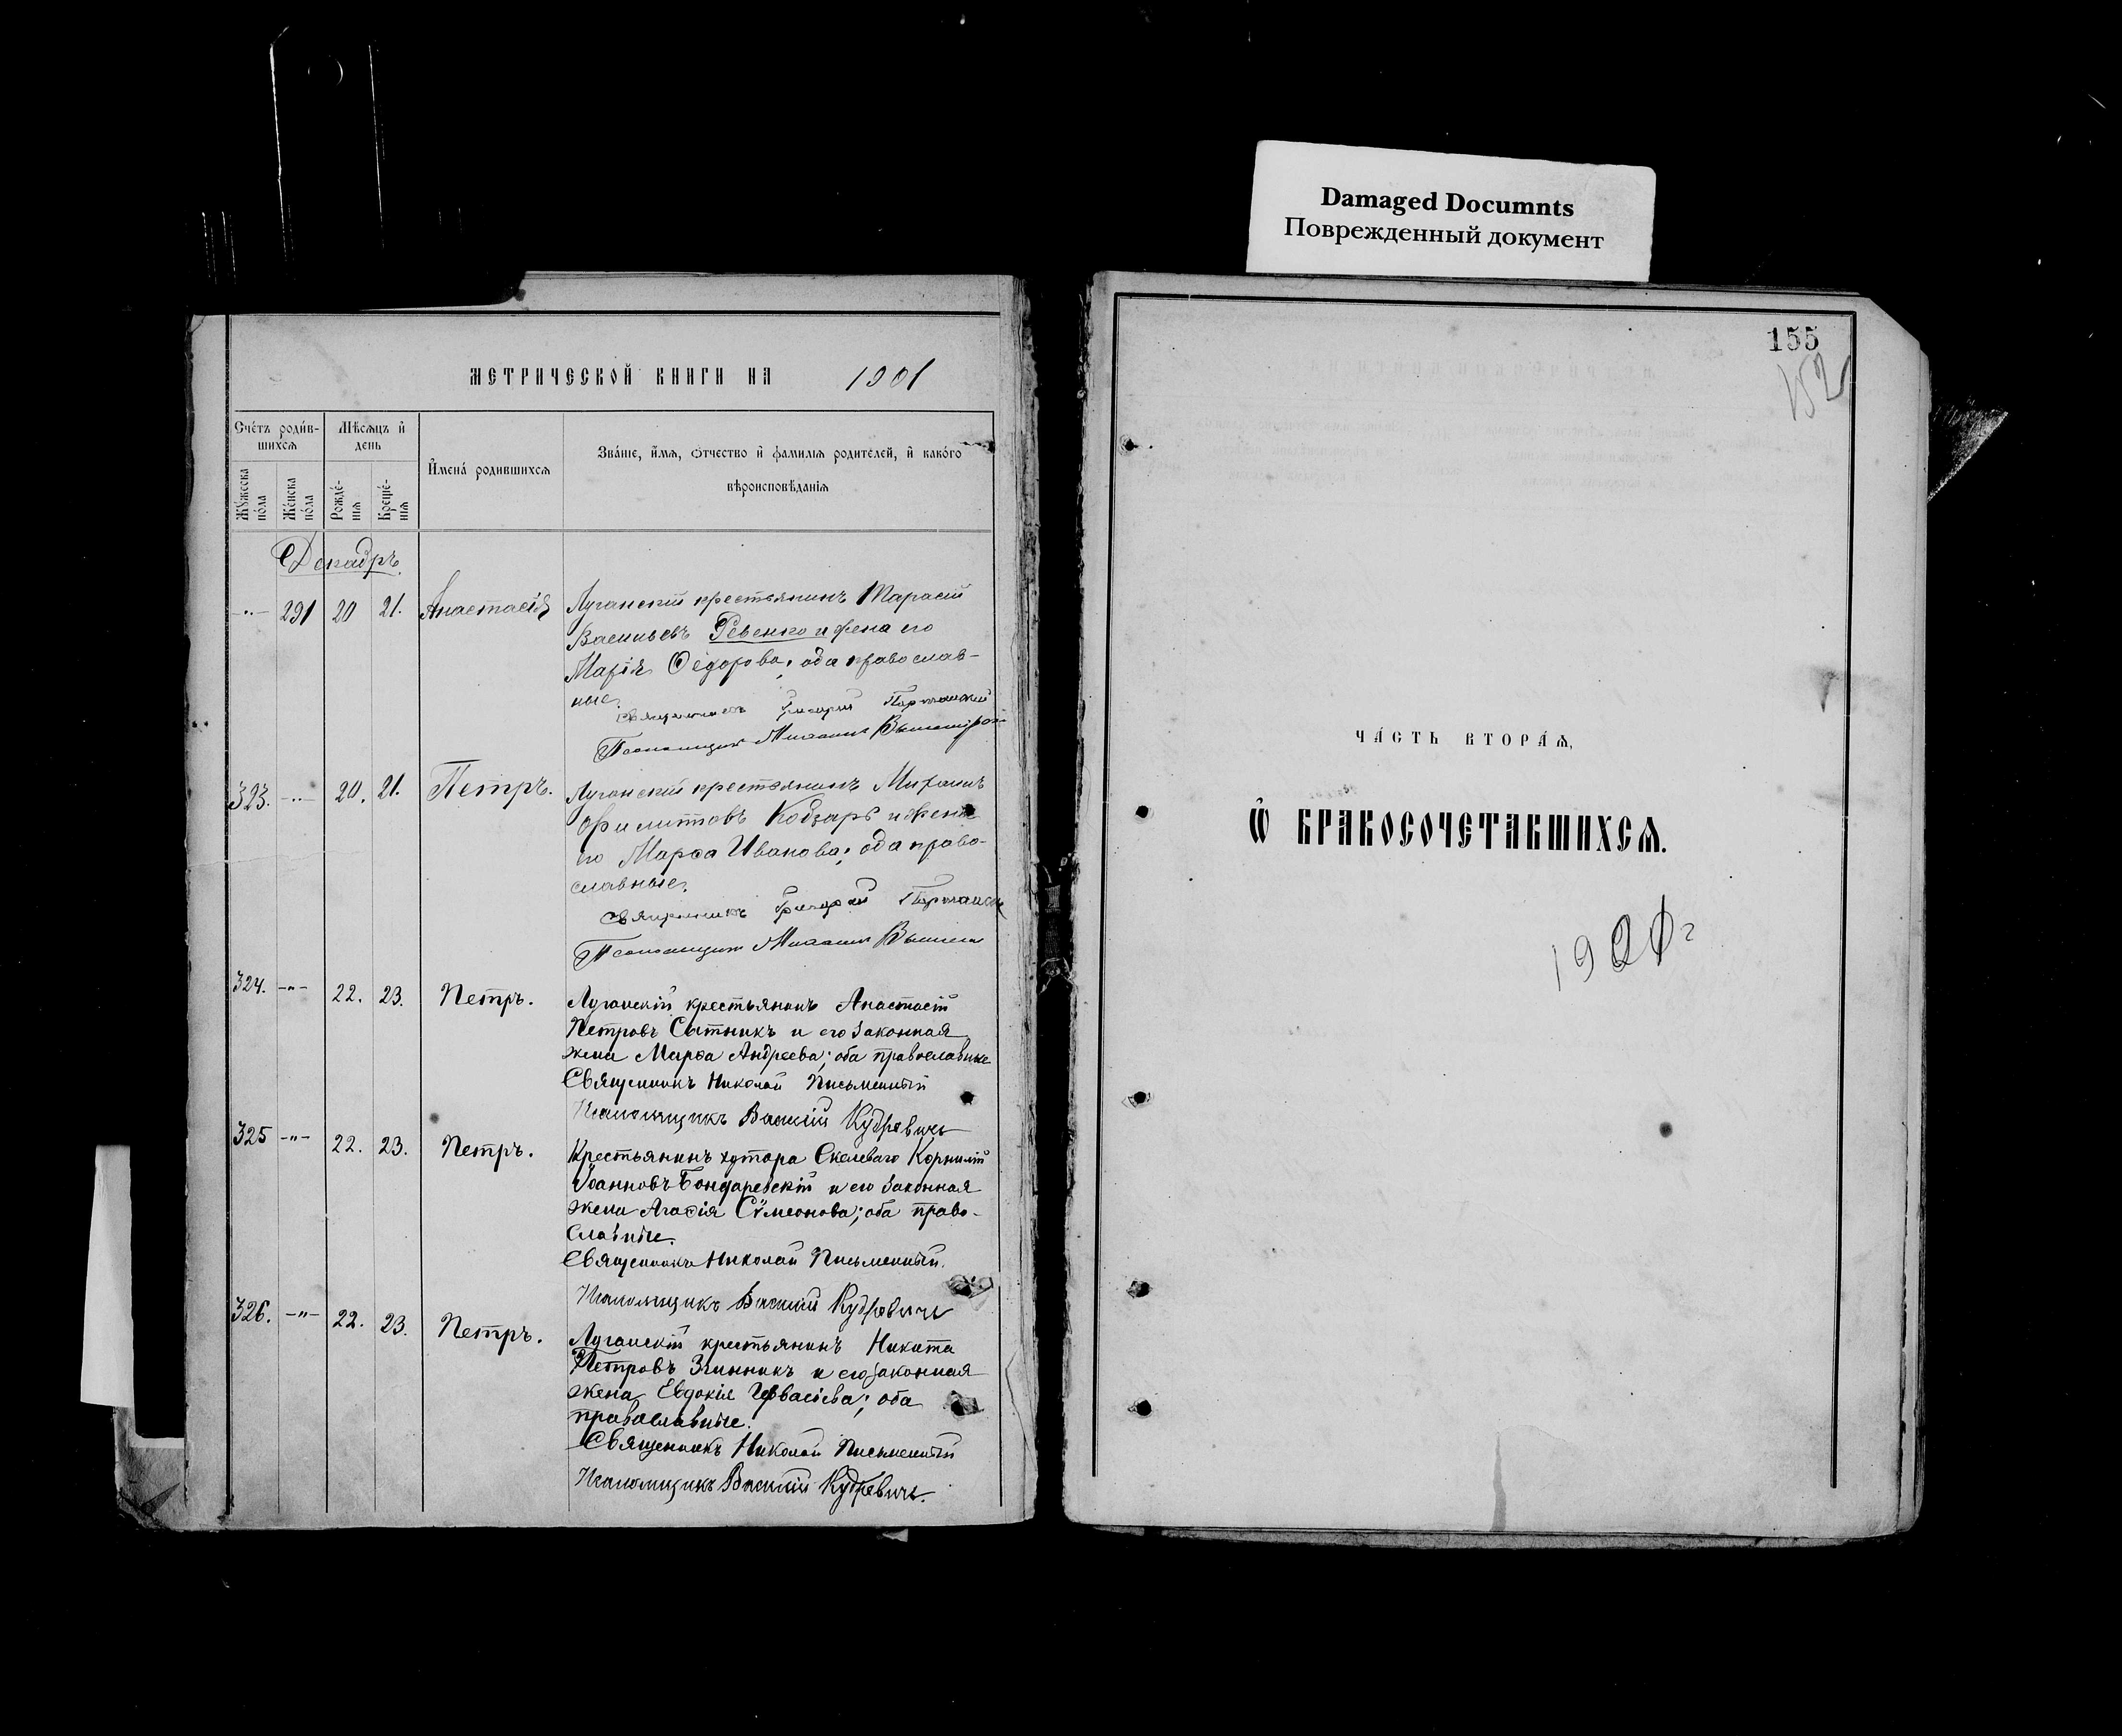 Damaged Documnts
Поврежденный документ
МЕТРИЧЕСКОЙ КНИГИ НА 1901
Счéтъ роди́в-
шихсѧ
Мѣ́сѧцъ и҆
день
И҆мена́ родившихсѧ
Зва́нїе, и҆́мѧ, ѻ҆́тчество и҆ фамилїѧ роди́телей, и҆ како́гѡ
вѣроисповѣ́данїѧ
Мꙋ́жеска
по́ла
Же́нска
по́ла
Рожде́-
нїѧ
Креще́-
нїѧ
Декабрь.
-„- 291 20 21. Анастасія Луганскій крестьянинъ Тарасій
Васильевъ Ревенко и жена его
Марія Ѳедорова; оба православ-
ные.
Священникъ Григорій
Псаломщикъ Михаилъ
323. -„- 20. 21. Петръ. Луганскій крестьянинъ
Филиповъ Кобзарь и жена
его Марѳа Иванова; оба право-
славные.
Священникъ Григорій
Псаломщикъ Михаилъ
324. -„- 22. 23. Петръ. Луганскій крестьянинъ Анастасій
Петровъ Сытникъ и его законная
жена Марѳа Андреева; оба православные
Священникъ Николай Письменный
Псаломщикъ Василій Кудревичъ
325 -„- 22. 23. Петръ. Крестьянинъ хутора Скелеваго Корнилій
Іоанновъ Бондаревскій и его законная
жена Агаѳія Сѵмеонова; оба право-
славные.
Священникъ Николай Письменный.
Псаломщикъ Василій Кудревичъ
326. -„- 22. 23. Петръ. Луганскій крестьянинъ Никита
Петровъ Зинникъ и его законная
жена Евдокія Гервасіева; оба
православные.
Священникъ Николай Письменный
Псаломщикъ Василій Кудревичъ.
155
152
ЧА́СТЬ ВТОРА́Ѧ,
Ѽ БРАКОСОЧЕТАВШИХСѦ.
1901 г